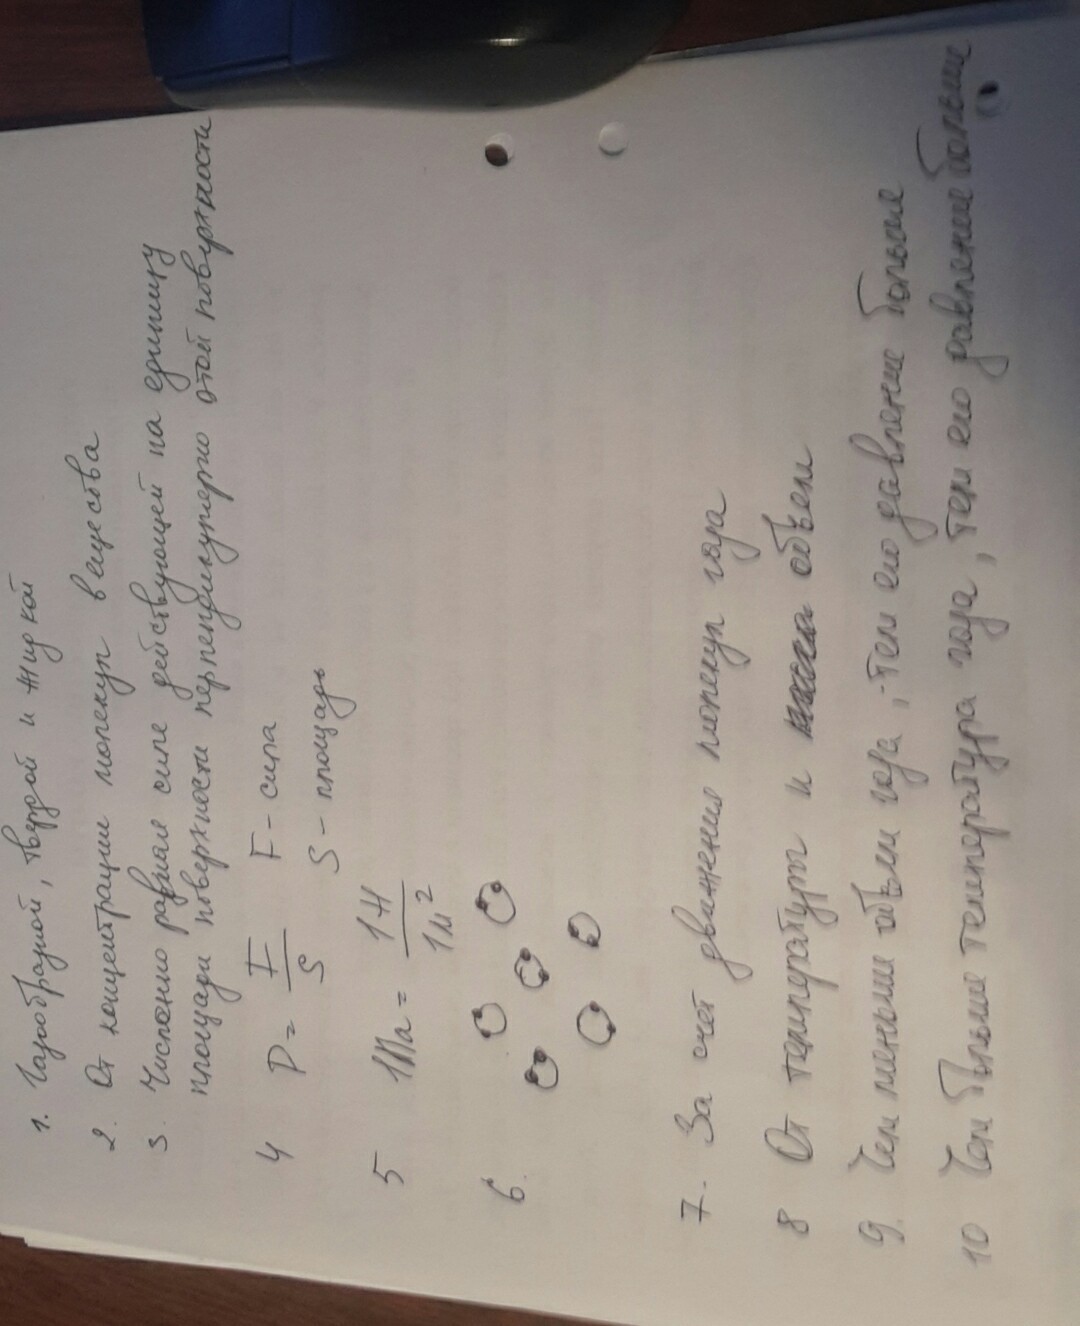 1. Газообразной, твердой и жидкой
2. От концентрации молекул вещества
3. Численно равная силе действующей на единицу
площади поверхности перпендикулярно этой поверхности
4 P = F/S F - сила
S - площадь
5 1Па = 1Н/1м²
6.
7. За счёт движения молекул газа
8 От температуры и объем
9. Чем меньше объем газа, тем его давление больше
10 Чем больше температура газа, тем его давление больше